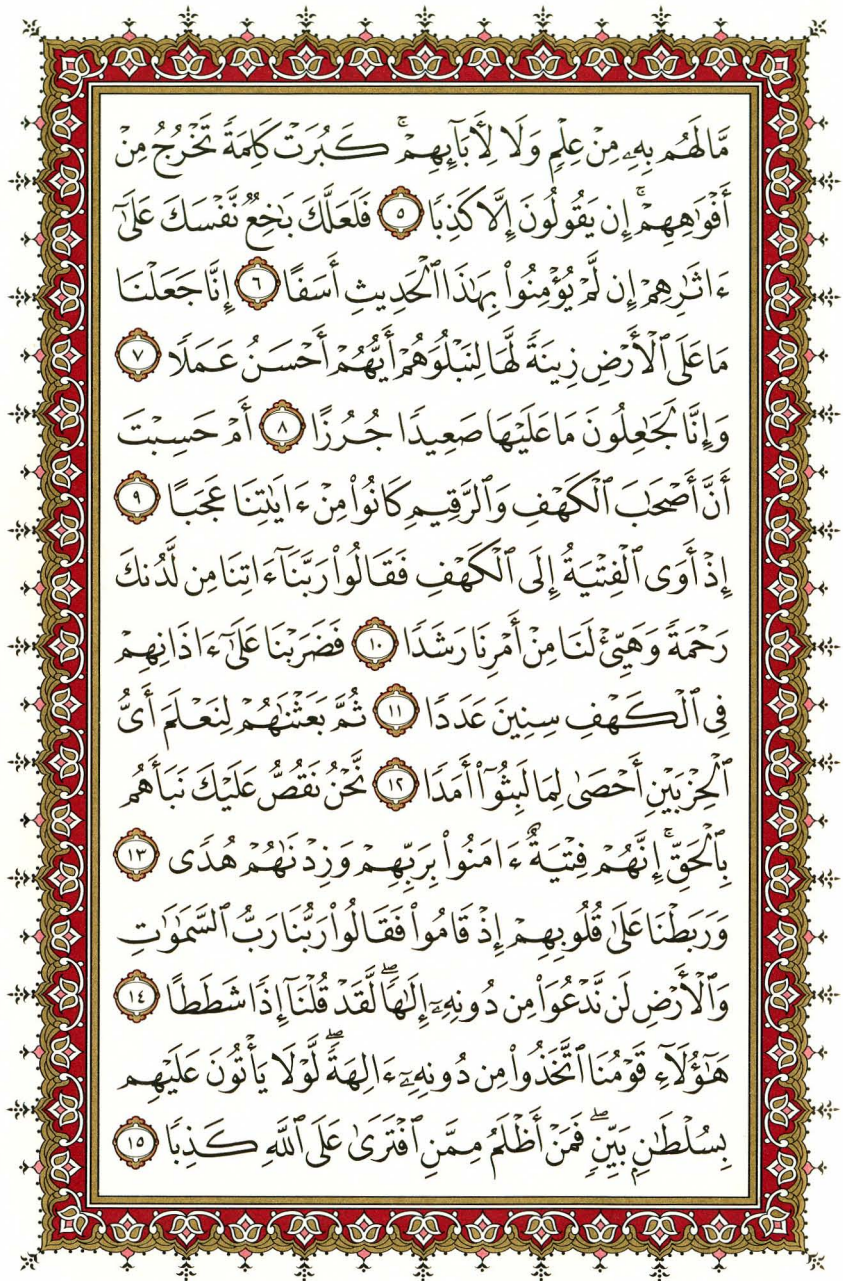 مَّا لَهُم بِهِۦ مِنْ عِلْمٍ وَلَا لِأَبَآئِهِمْ ۚ كَبُرَتْ كَلِمَةً تَخْرُجُ مِنْ
أَفْوَٰهِهِمْ ۚ إِن يَقُولُونَ إِلَّا كَذِبًا ٥ فَلَعَلَّكَ بَٰخِعٌ نَّفْسَكَ عَلَىٰٓ
ءَاثَٰرِهِمْ إِن لَّمْ يُؤْمِنُوا۟ بِهَٰذَا ٱلْحَدِيثِ أَسَفًا ٦ إِنَّا جَعَلْنَا
مَا عَلَى ٱلْأَرْضِ زِينَةً لَّهَا لِنَبْلُوَهُمْ أَيُّهُمْ أَحْسَنُ عَمَلًا ٧
وَإِنَّا لَجَٰعِلُونَ مَا عَلَيْهَا صَعِيدًا جُرُزًا ٨ أَمْ حَسِبْتَ
أَنَّ أَصْحَٰبَ ٱلْكَهْفِ وَٱلرَّقِيمِ كَانُوا۟ مِنْ ءَايَٰتِنَا عَجَبًا ٩
إِذْ أَوَى ٱلْفِتْيَةُ إِلَى ٱلْكَهْفِ فَقَالُوا۟ رَبَّنَآ ءَاتِنَا مِن لَّدُنكَ
رَحْمَةً وَهَيِّئْ لَنَا مِنْ أَمْرِنَا رَشَدًا ١٠ فَضَرَبْنَا عَلَىٰٓ ءَاذَانِهِمْ
فِى ٱلْكَهْفِ سِنِينَ عَدَدًا ١١ ثُمَّ بَعَثْنَٰهُمْ لِنَعْلَمَ أَىُّ
ٱلْحِزْبَيْنِ أَحْصَىٰ لِمَا لَبِثُوٓا۟ أَمَدًا ١٢ نَّحْنُ نَقُصُّ عَلَيْكَ نَبَأَهُم
بِٱلْحَقِّ ۚ إِنَّهُمْ فِتْيَةٌ ءَامَنُوا۟ بِرَبِّهِمْ وَزِدْنَٰهُمْ هُدًى ١٣
وَرَبَطْنَا عَلَىٰ قُلُوبِهِمْ إِذْ قَامُوا۟ فَقَالُوا۟ رَبُّنَا رَبُّ ٱلسَّمَٰوَٰتِ
وَٱلْأَرْضِ لَن نَّدْعُوَا۟ مِن دُونِهِۦٓ إِلَٰهًا ۖ لَّقَدْ قُلْنَآ إِذًا شَطَطًا ١٤
هَٰٓؤُلَآءِ قَوْمُنَا ٱتَّخَذُوا۟ مِن دُونِهِۦٓ ءَالِهَةً ۖ لَّوْلَا يَأْتُونَ عَلَيْهِم
بِسُلْطَٰنٍۭ بَيِّنٍ ۖ فَمَنْ أَظْلَمُ مِمَّنِ ٱفْتَرَىٰ عَلَى ٱللَّهِ كَذِبًا ١٥